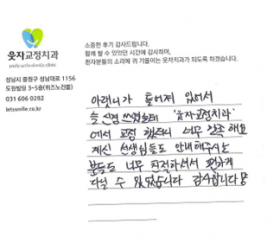 웃자교정치과
성남시 중원구 성남대로 1156
도림빌딩 3~5층(위즈노건물)
031 606 0282
letssmile.co.kr
소중한 후기 감사드립니다.
함께 할 수 있었던 시간에 감사하며,
환자분들의 소리에 귀 기울이는 웃자치과가 되도록 하겠습니다.
아랫니가 틀어져 있어서
늘 신경 쓰였는데 '웃자교정치과'
에서 교정 했더니 너무 만족해요
계신 선생님들도 안내해주시는
분들도 너무 친절하셔서 편하게
다닐 수 있었습니다 감사합니다